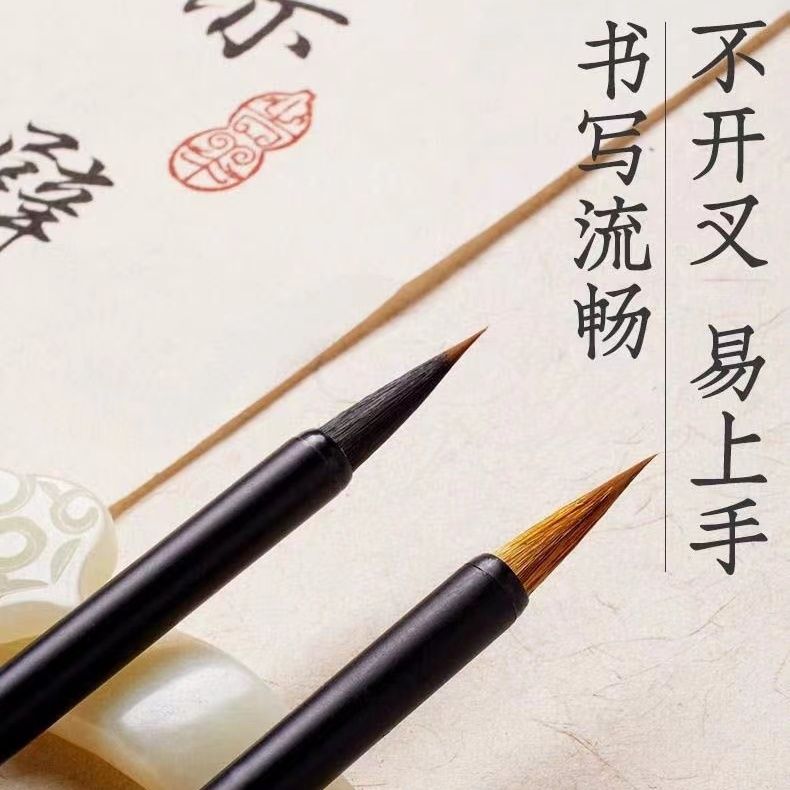 不开叉 易上手
书写流畅